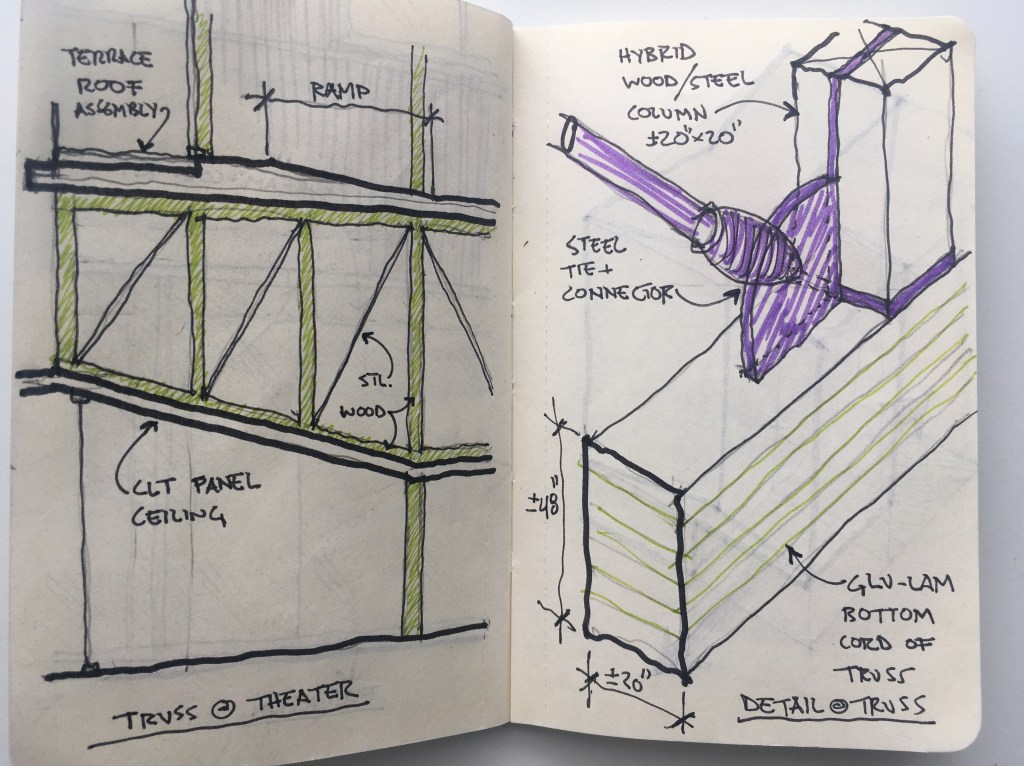 TERRACE
ROOF
ASSEMBLY
RAMP
STL.
WOOD
CLT PANEL
CEILING
TRUSS @ THEATER
HYBRID
WOOD/STEEL
COLUMN
±20"x20"
STEEL
TIE+
CONNECTOR
±48"
±20"
GLU-LAM
BOTTOM
CORD OF
TRUSS
DETAIL @ TRUSS